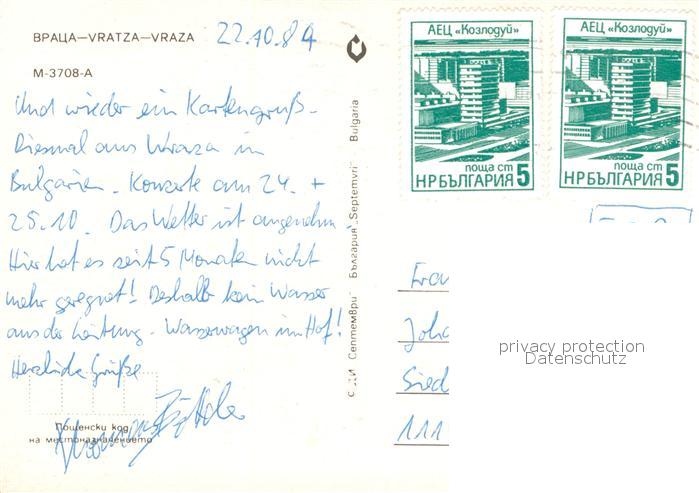 ВРАЦА—VRATZA—VRAZA
22.10.84
М-3708-А
Und wieder ein Kartengruß -
Diesmal aus Wraza in
Bulgarien. Konzerte am 24. +
25.10. Das Wetter ist angenehm.
Hier hat es seit 5 Monaten nicht
mehr geregnet! Deshalb kein Wasser
aus der Leitung - Wasserwagen im Hof!
Herzliche Grüße
Пощенски код
на местоназначението
С ДИ Септември България "Septemvri" Bulgaria
АЕЦ «Козлодуй»
поща ст
НРБЪЛГАРИЯ 5
АЕЦ «Козлодуй»
поща ст
НРБЪЛГАРИЯ 5
Frau
Joha
Sied
111
privacy protection
Datenschutz